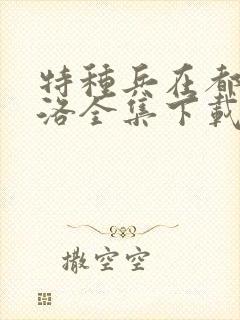 特種兵在都
洛全集下載
撒空空